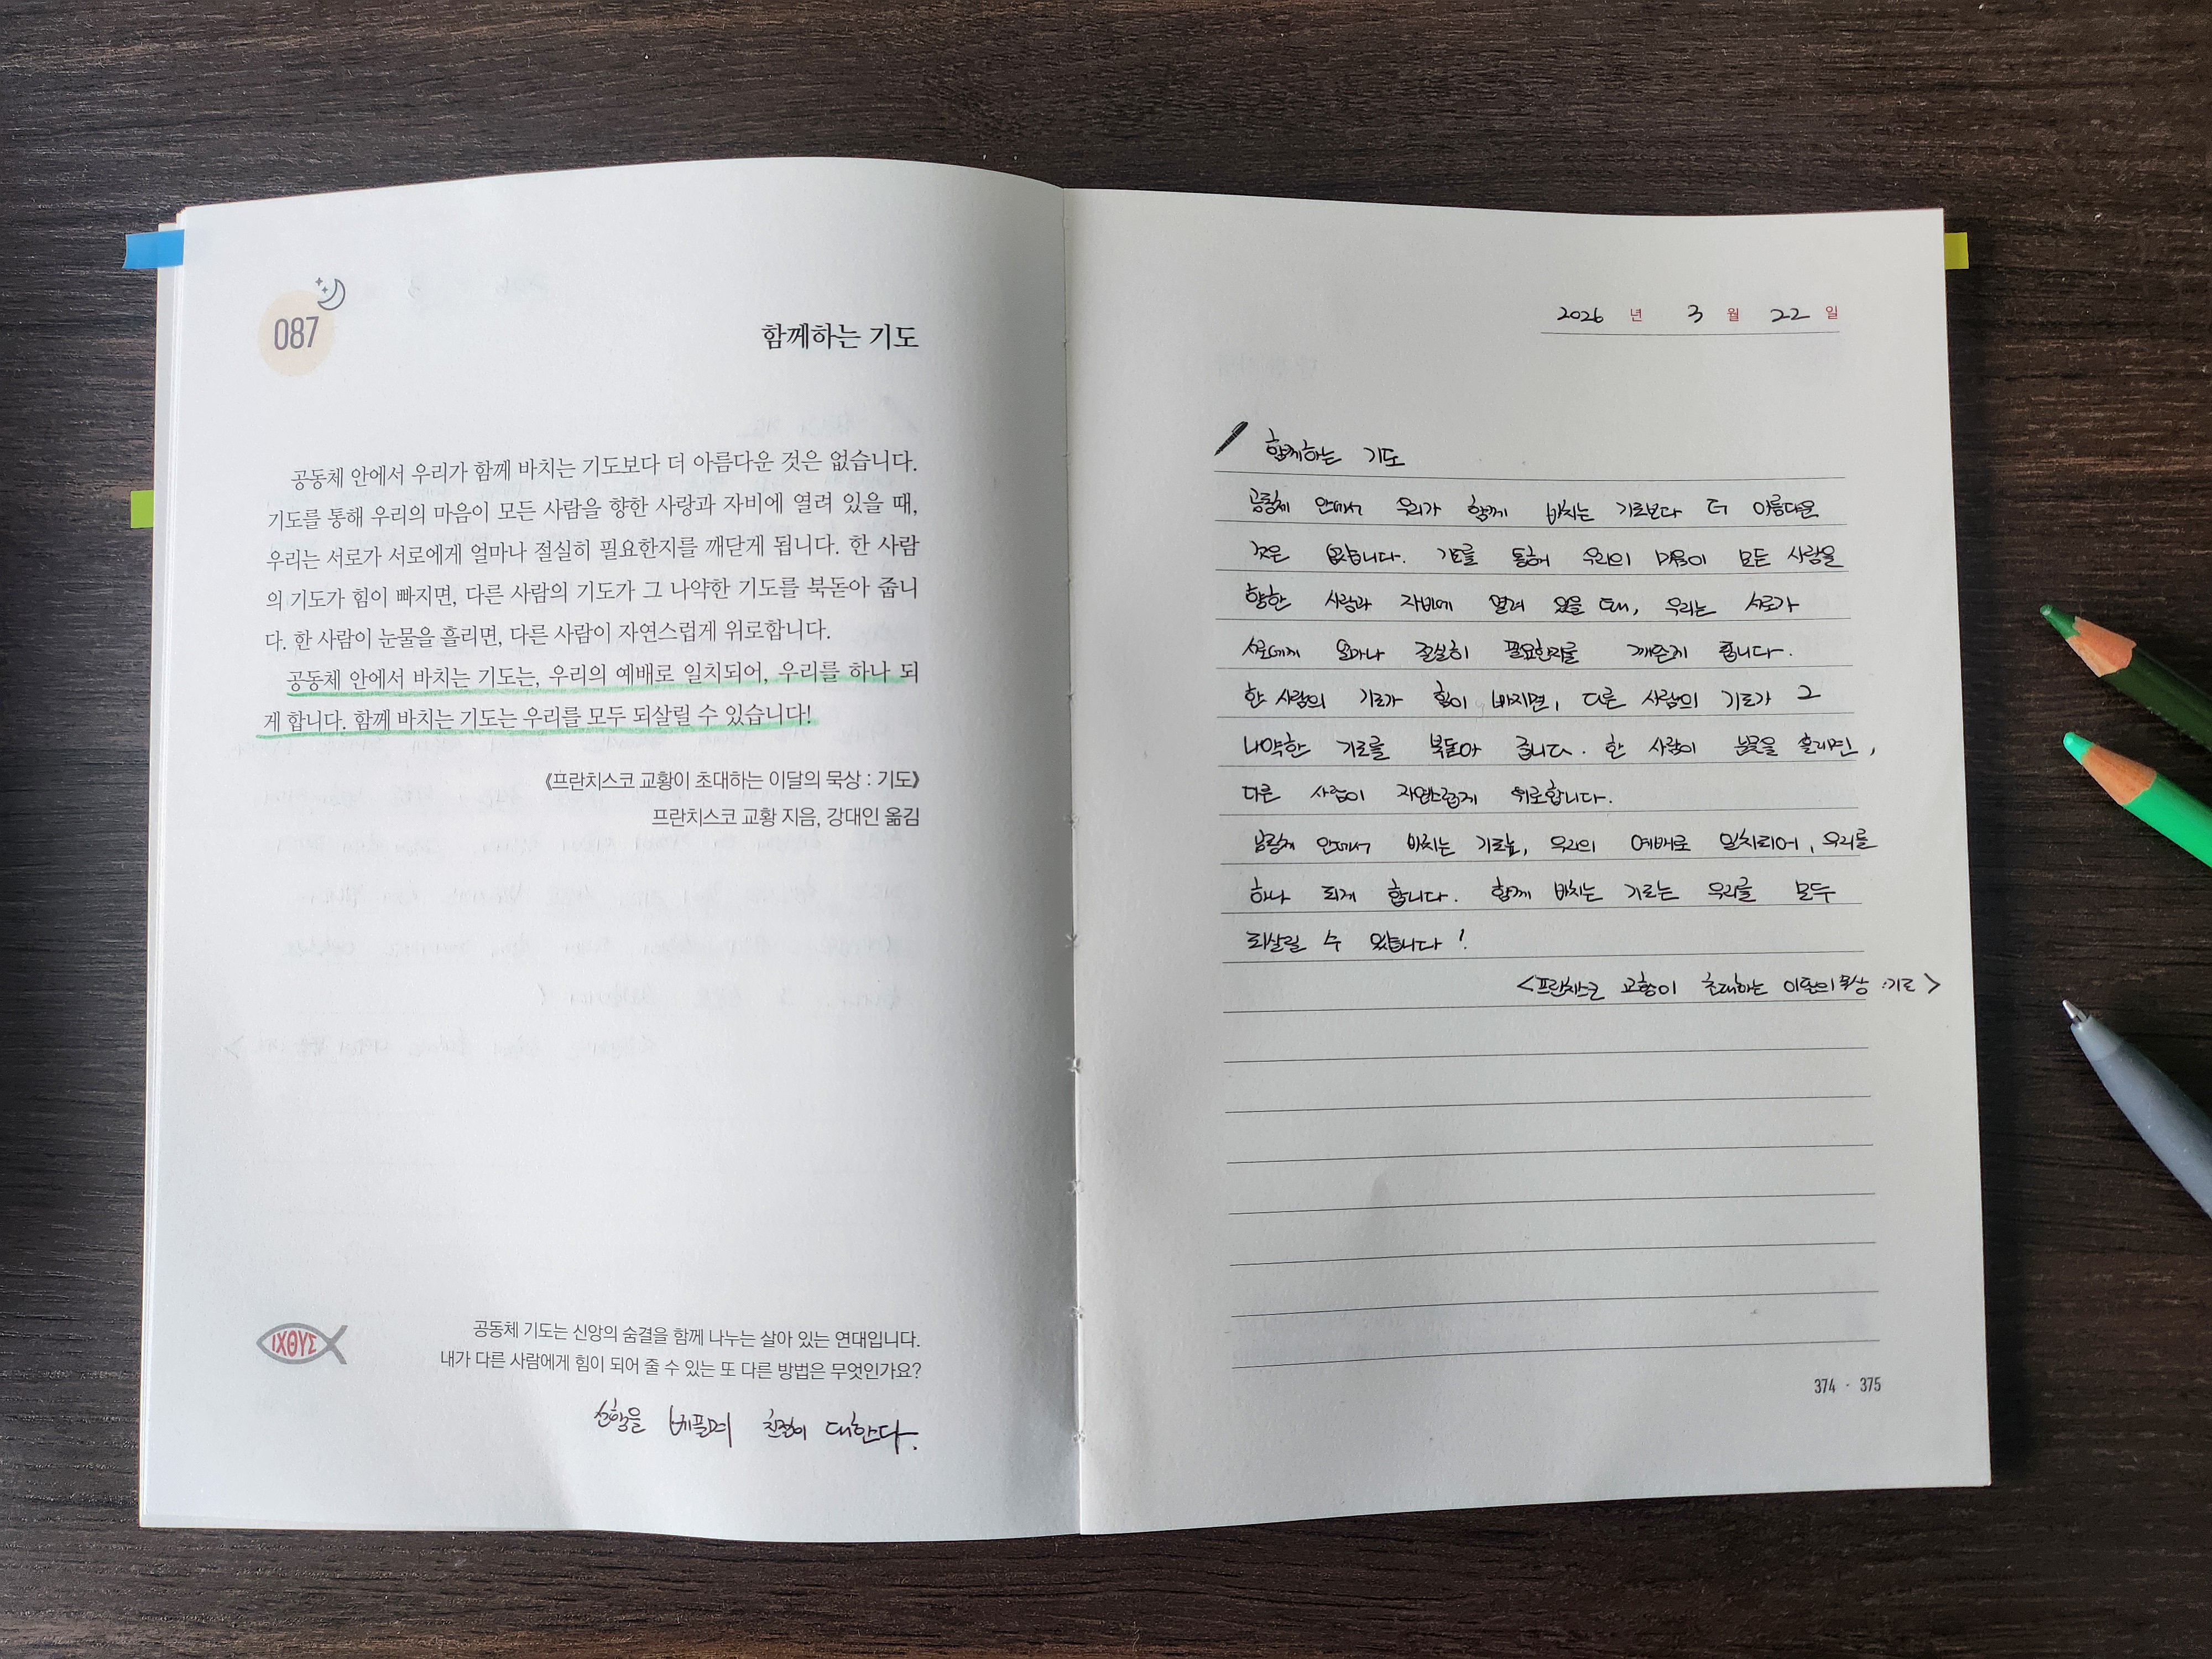 087
함께하는 기도
공동체 안에서 우리가 함께 바치는 기도보다 더 아름다운 것은 없습니다.
기도를 통해 우리의 마음이 모든 사람을 향한 사랑과 자비에 열려 있을 때,
우리는 서로가 서로에게 얼마나 절실히 필요한지를 깨닫게 됩니다. 한 사람
의 기도가 힘이 빠지면, 다른 사람의 기도가 그 나약한 기도를 북돋아 줍니
다. 한 사람이 눈물을 흘리면, 다른 사람이 자연스럽게 위로합니다.
공동체 안에서 바치는 기도는, 우리의 예배로 일치되어, 우리를 하나 되
게 합니다. 함께 바치는 기도는 우리를 모두 되살릴 수 있습니다!
《프란치스코 교황이 초대하는 이달의 묵상 : 기도》
프란치스코 교황 지음, 강대인 옮김
ΙΧΘΥΣ
공동체 기도는 신앙의 숨결을 함께 나누는 살아 있는 연대입니다.
내가 다른 사람에게 힘이 되어 줄 수 있는 또 다른 방법은 무엇인가요?
선행을 베풀며 친절히 대한다.
2026 년 3 월 22 일
함께하는 기도
공동체 안에서 우리가 함께 바치는 기도보다 더 아름다운
것은 없습니다. 기도를 통해 우리의 마음이 모든 사람을
향한 사랑과 자비에 열려 있을 때, 우리는 서로가
서로에게 얼마나 절실히 필요한지를 깨닫게 됩니다.
한 사람의 기도가 힘이 빠지면, 다른 사람의 기도가 그
나약한 기도를 북돋아 줍니다. 한 사람이 눈물을 흘리면,
다른 사람이 자연스럽게 위로합니다.
공동체 안에서 바치는 기도는, 우리의 예배로 일치되어, 우리를
하나 되게 합니다. 함께 바치는 기도는 우리를 모두
되살릴 수 있습니다!
<프란치스코 교황이 초대하는 이달의 묵상 : 기도>
374 · 375